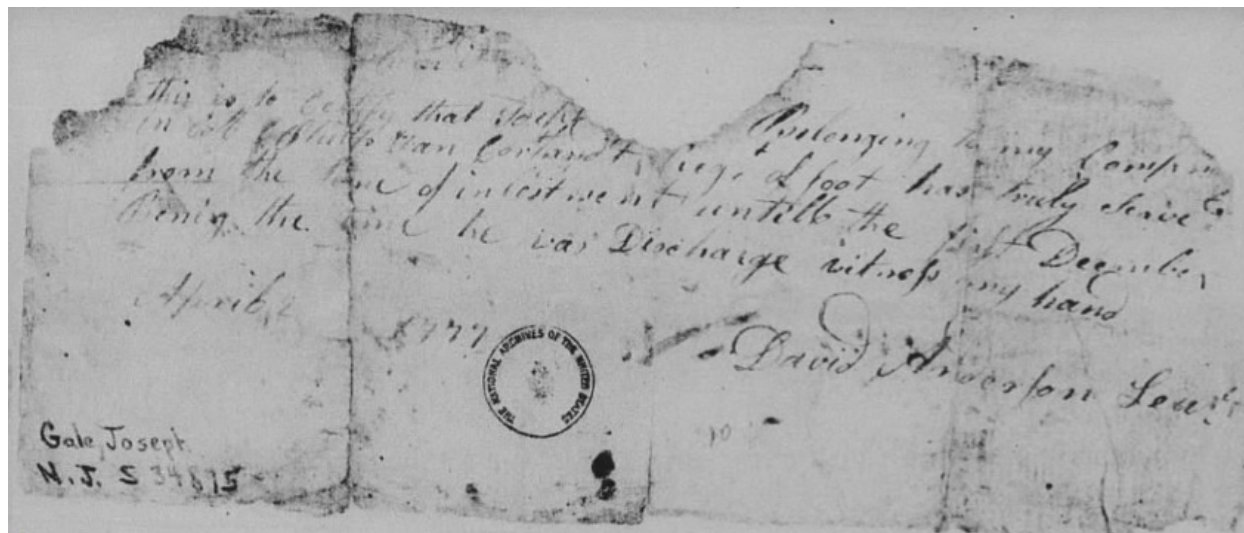 this is to Certify that Josph Belonging to my Compny
in Coll Phillip Van Cortandt Reigt of foot has truly Serve
from the time of inlestment untill the first December
Benig the time he was Discharge witness my hand
April 2 1777
David Anderson Leut
THE NATIONAL ARCHIVES OF THE UNITED STATES
10
Gale, Joseph
N.J. S 34815